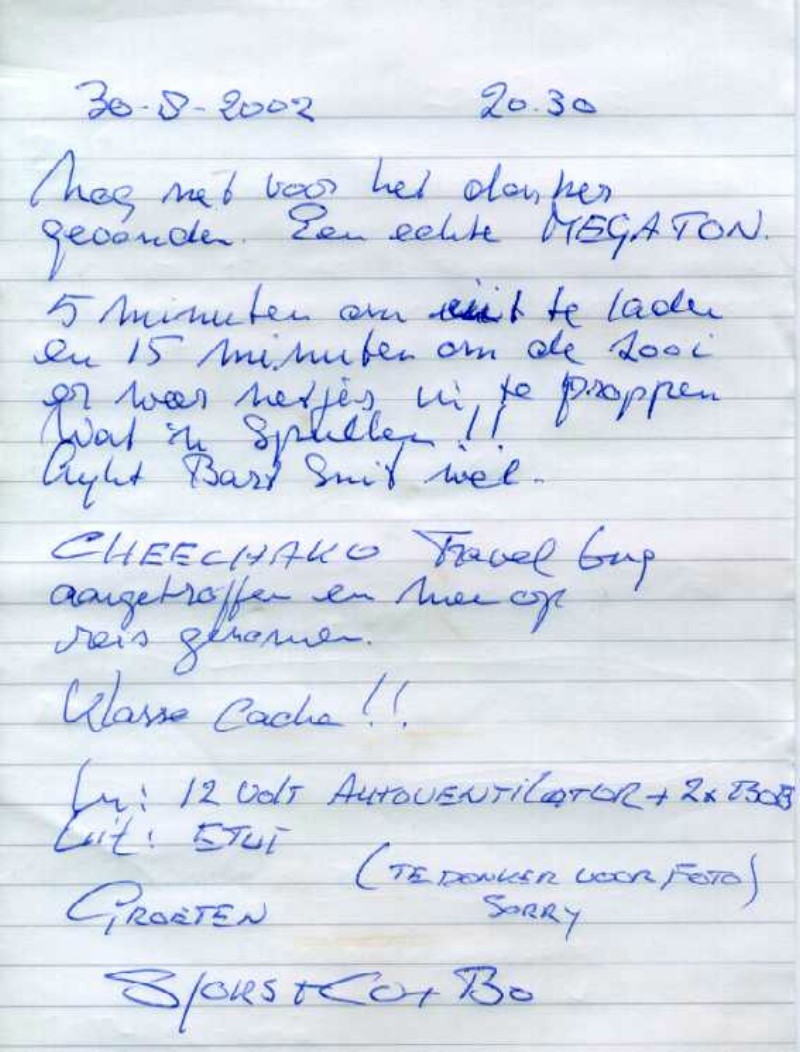 30-8-2002 20.30
Nog net voor het donker
gevonden. Een echte MEGATON.
5 minuten om uit te laden
en 15 minuten om de zooi
er weer netjes in te proppen
Wat 'n spullen !!
Lijkt Bart Smit wel.
CHEECHAKO Travel bug
aangetroffen en mee op
reis genomen.
Klasse Cache !!
In: 12 VOLT AUTOVENTILATOR + 2x BOB
Uit: ETUI
(TE DONKER VOOR FOTO)
GROETEN SORRY
+ Co + Bo